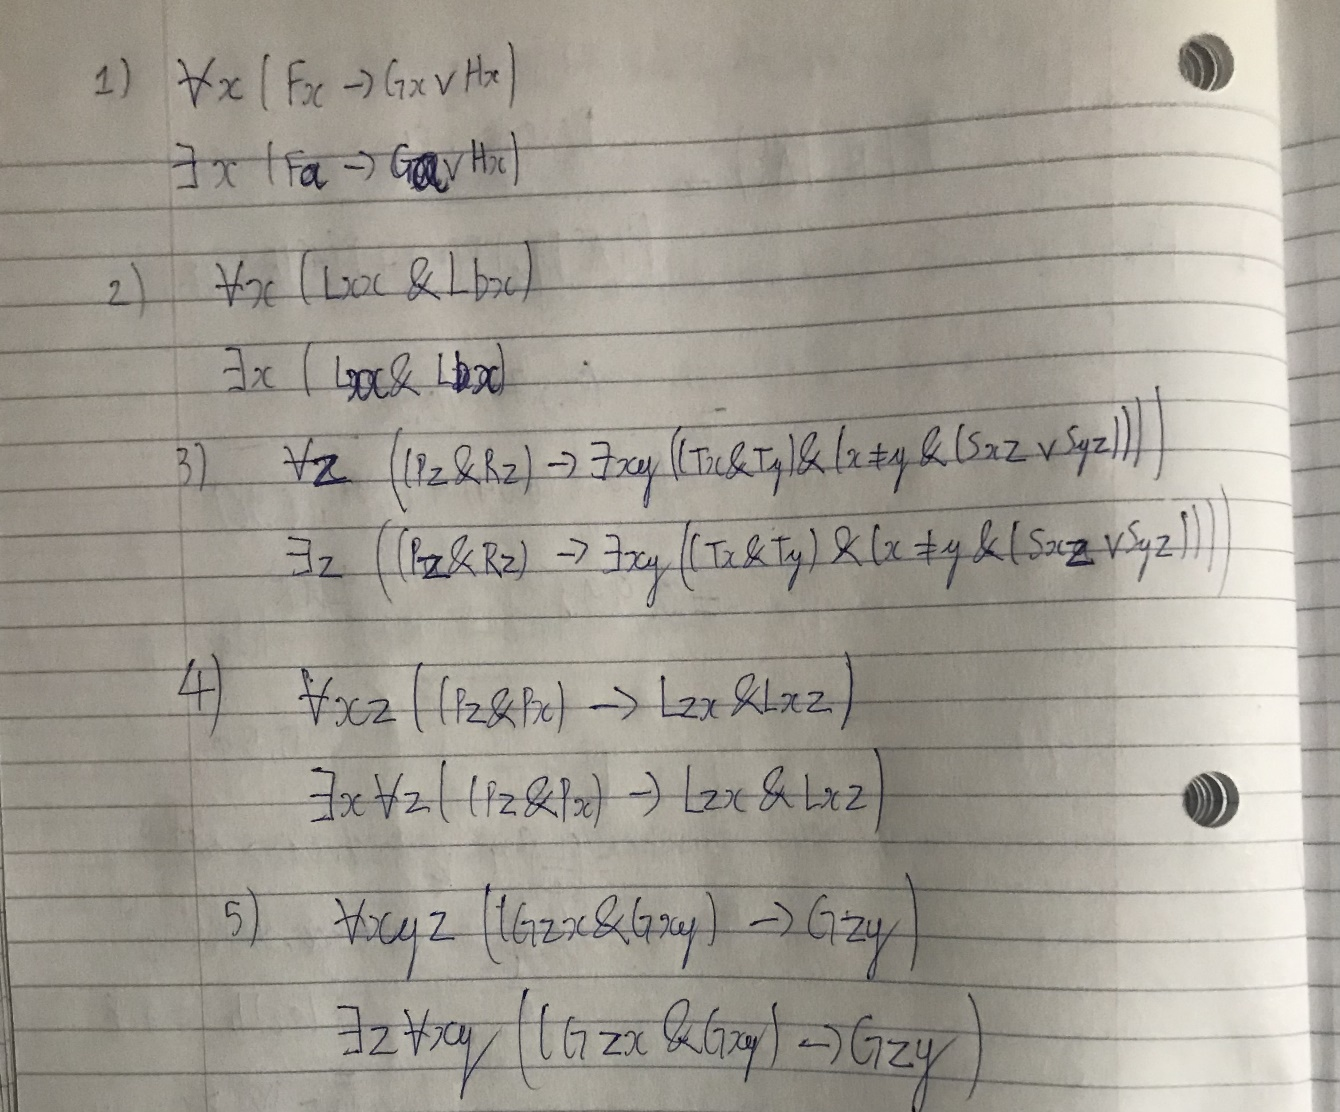 1) ∀x (Fx → Gx ∨ Hx)
∃x (Fa → Ga ∨ Hx)
2) ∀x (Lxx & Lbx)
∃x (Lxx & Lbx)
3) ∀z ((Pz & Rz) → ∃xy ((Tx & Ty) & (x ≠ y & (Sxz ∨ Syz))))
∃z ((Pz & Rz) → ∃xy ((Tx & Ty) & (x ≠ y & (Sxz ∨ Syz))))
4) ∀xz ((Pz & Px) → Lzx & Lxz)
∃x ∀z ((Pz & Px) → Lzx & Lxz)
5) ∀xyz ((Gzx & Gxy) → Gzy)
∃z ∀xy ((Gzx & Gxy) → Gzy)